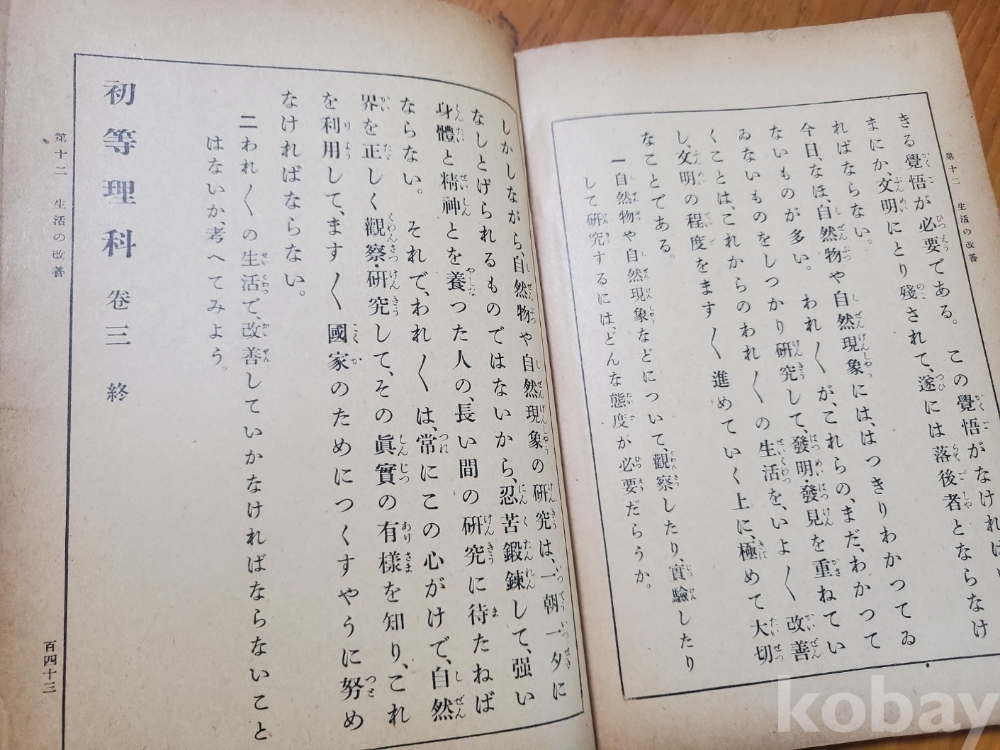 第十二 生活の改善
きる覺悟が必要である。この覺悟がなけ
まにか、文明にとり殘されて、遂には落後者とならなけ
ればならない。
今日なほ、自然物や自然現象には、はつきりわかつてゐ
ないものが多い。われ〳〵が、これらの、まだ、わかつて
ゐないものをしつかり研究して、發明・發見を重ねてい
くことは、これからのわれ〳〵の生活を、いよ〳〵改善
し、文明の程度をます〳〵進めていく上に、極めて大切
なことである。
一 自然物や自然現象などについて、觀察したり實驗したり
して研究するには、どんな態度が必要だらうか。
しかしながら、自然物や自然現象の研究は、一朝一夕に
なしとげられるものではないから、忍苦鍛鍊して、强い
身體と精神とを養つた人の、長い間の研究に待たねば
ならない。それで、われ〳〵は、常にこの心がけで、自然
界を正しく觀察・研究して、その眞實の有樣を知り、これ
を利用して、ます〳〵國家のためにつくすやうに努め
なければならない。
二 われ〳〵の生活で、改善していかなければならないこと
はないか、考へてみよう。
初等理科 卷三 終
第十二 生活の改善
百四十三
kobay